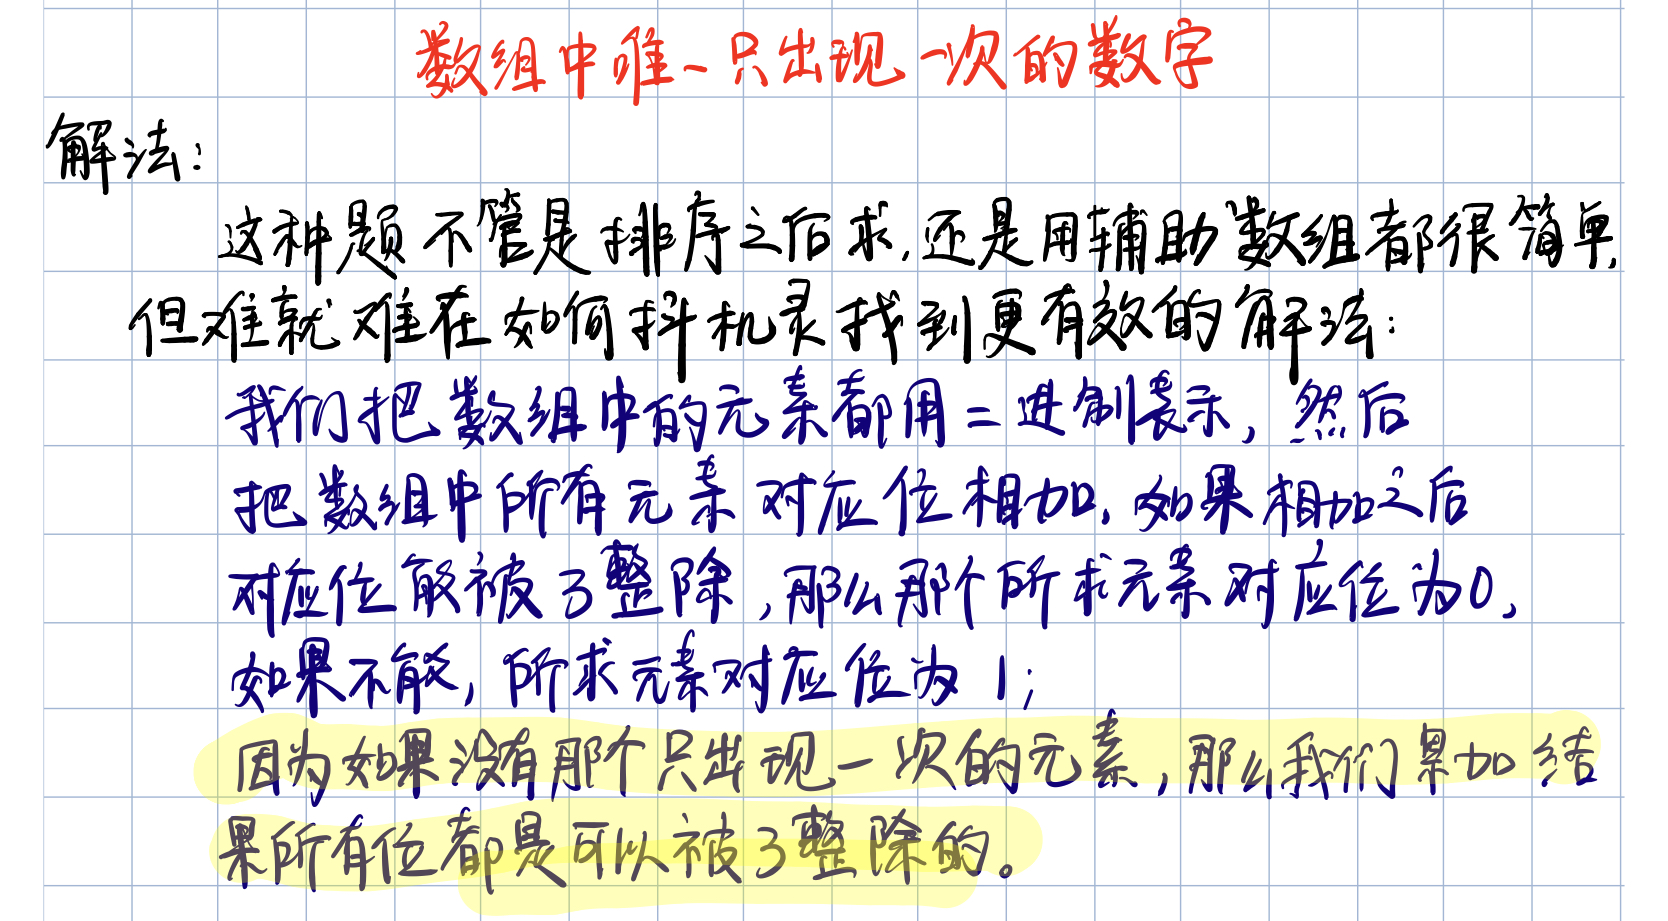 数组中唯一只出现一次的数字
解法：
这种题不管是排序之后求,还是用辅助数组都很简单,
但难就难在如何抖机灵找到更有效的解法：
我们把数组中的元素都用二进制表示，然后
把数组中所有元素对应位相加,如果相加之后
对应位能被3整除,那么那个所求元素对应位为0,
如果不能,所求元素对应位为1;
因为如果没有那个只出现一次的元素,那么我们累加结
果所有位都是可以被3整除的。